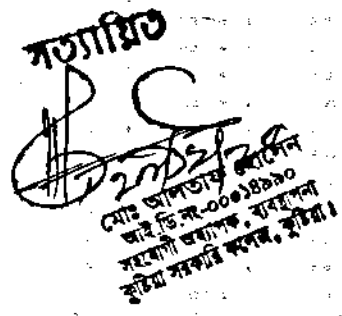 সত্যায়িত
মোঃ আলতাফ হোসেন
আই.ডি.নং-০০০১৪৯৯০
সহযোগী অধ্যাপক, ব্যবস্থাপনা
কুষ্টিয়া সরকারি কলেজ, কুষ্টিয়া।